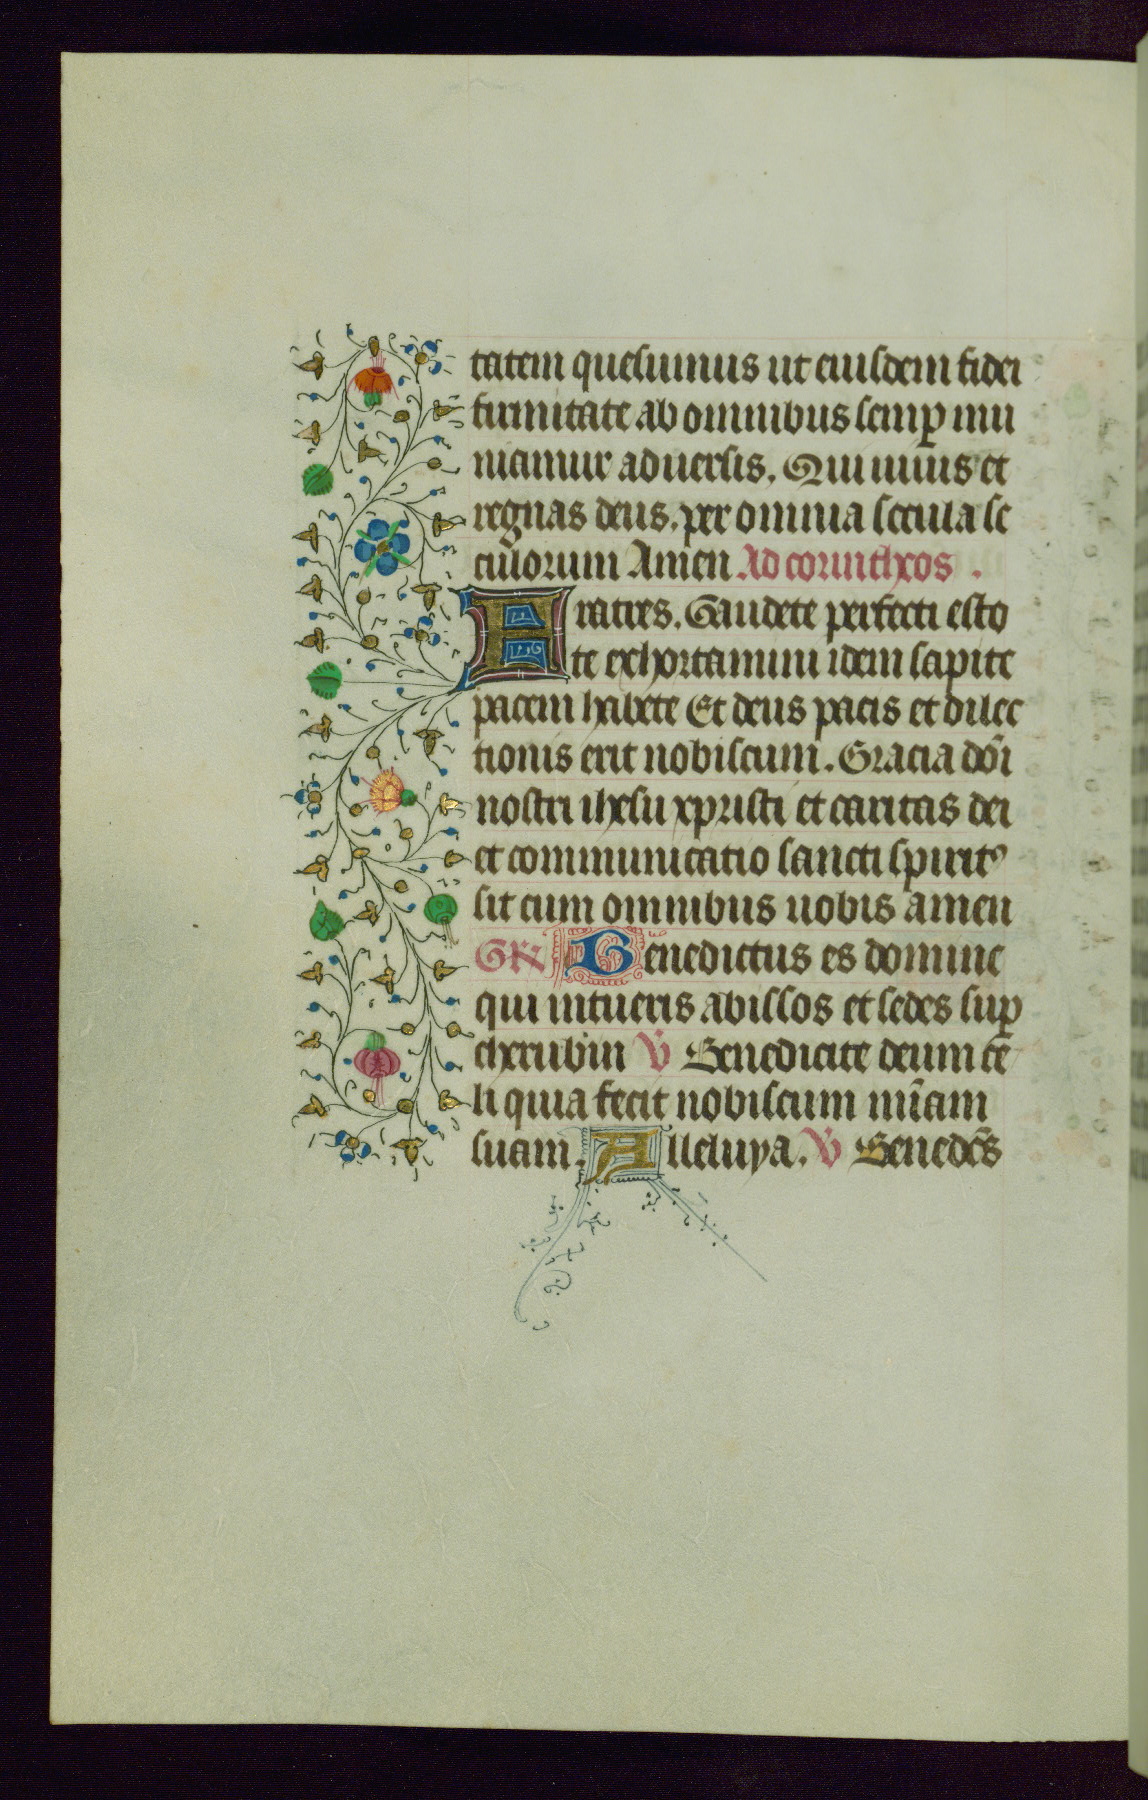 tatem quesumus ut eiusdem fidei
firmitate ab omnibus semꝑ mu
niamur aduersis. Qui uiuis et
regnas deus. per omnia secula se
culorum Amen Ad corinthyos .
Fratres. Gaudete perfecti esto
te exhortamini idem sapite
pacem habete Et deus pacis et dilec
tionis erit nobiscum. Gracia dn̄i
nostri ihesu xpristi et caritas dei
et communicatio sancti spiritꝰ
sit cum omnibus uobis amen
Gr̄ Benedictus es domine
qui intueris abissos et sedes suꝑ
cherubin V̄ Benedicite deum ce
li quia fecit nobiscum mīam
suam. Alleluya. V̄ Benedc̄s